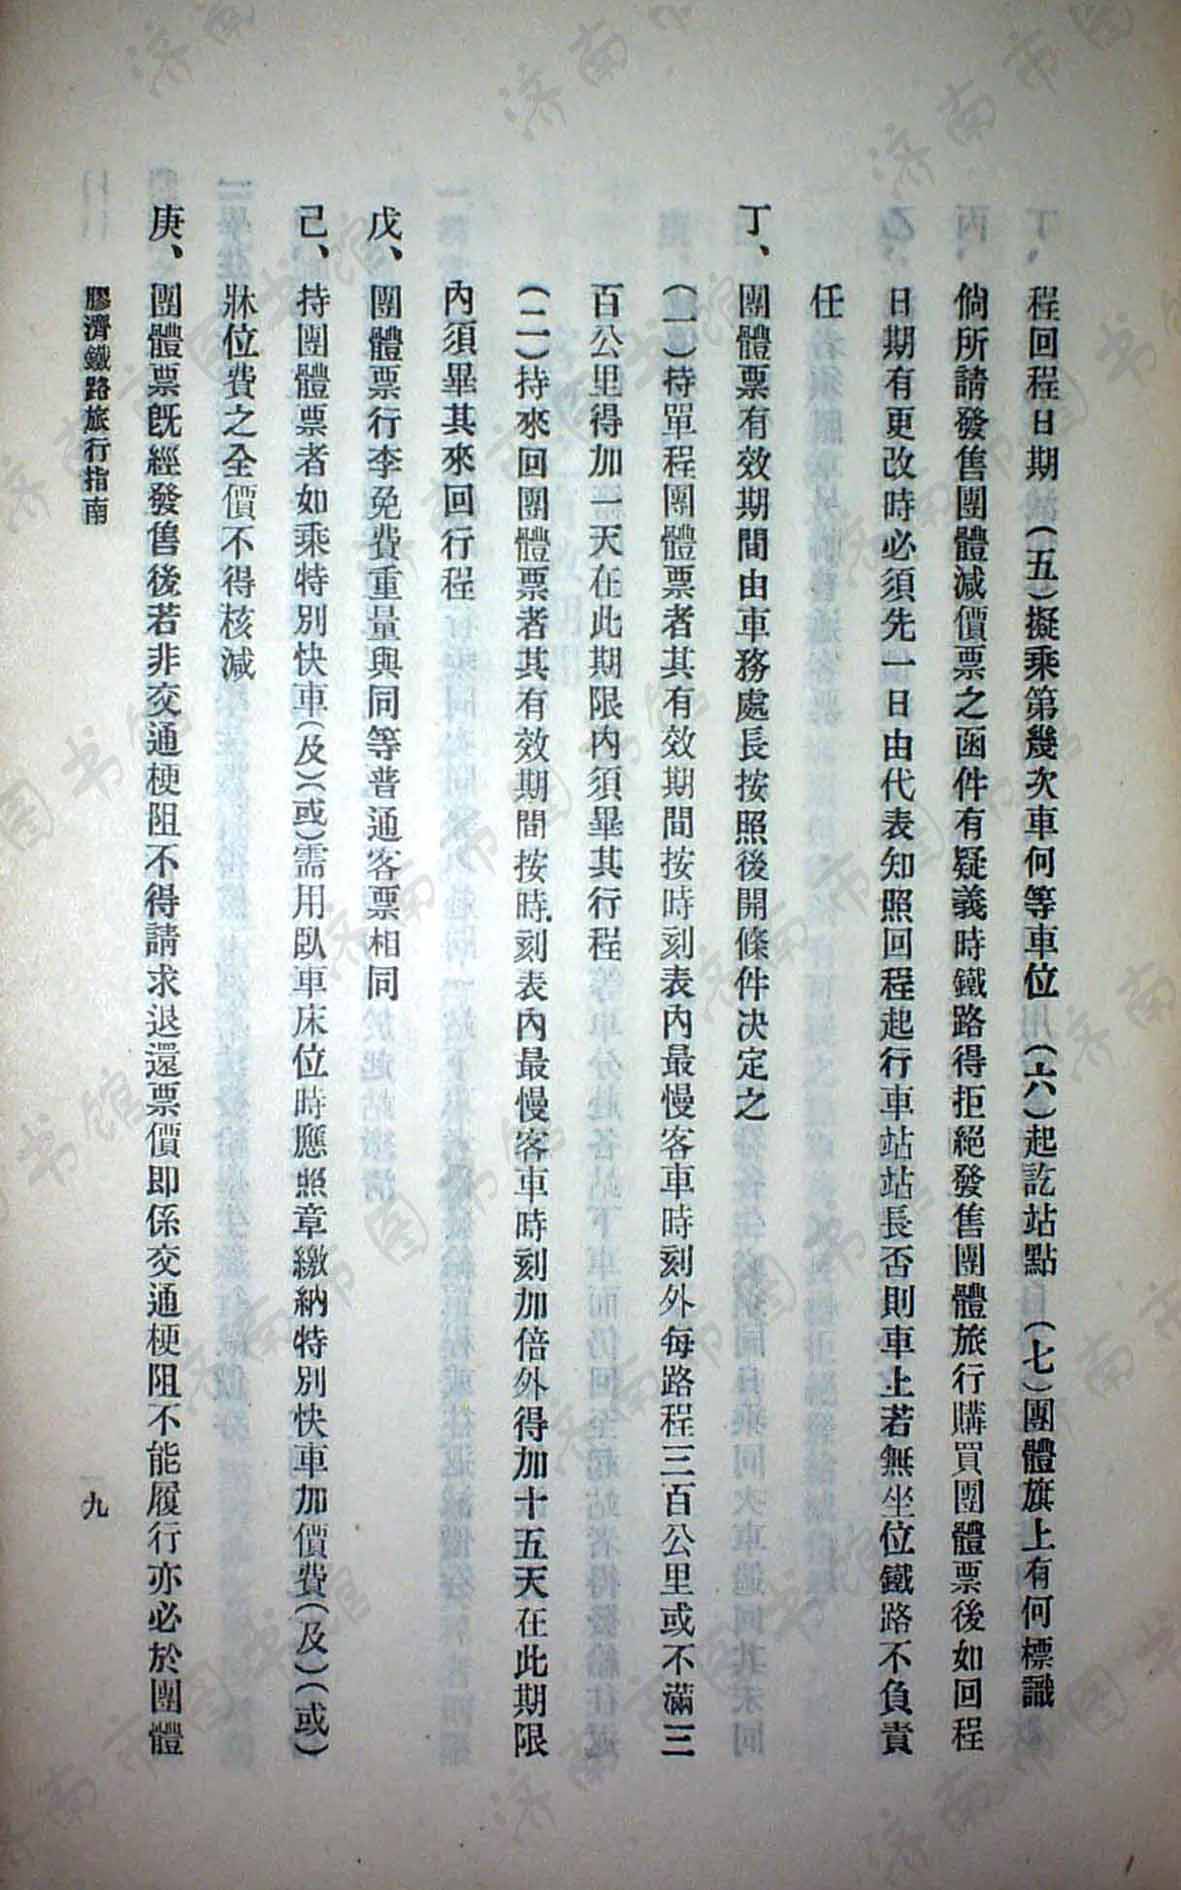 程回程日期（五）擬乘第幾次車何等車位（六）起訖站點（七）團體旗上有何標識
倘所請發售團體減價票之函件有疑義時鐵路得拒絕發售團體旅行購買團體票後如回程
日期有更改時必須先一日由代表知照回程起行車站站長否則車上若無坐位鐵路不負責
任
丁、團體票有效期間由車務處長按照後開條件決定之
（一）持單程團體票者其有效期間按時刻表內最慢客車時刻外每路程三百公里或不滿三
百公里得加一天在此期限內須畢其行程
（二）持來回團體票者其有效期間按時刻表內最慢客車時刻加倍外得加十五天在此期限
內須畢其來回行程
戊、團體票行李免費重量與同等普通客票相同
己、持團體票者如乘特別快車（及）（或）需用臥車床位時應照章繳納特別快車加價費（及）（或）
牀位費之全價不得核減
庚、團體票既經發售後若非交通梗阻不得請求退還票價即係交通梗阻不能履行亦必於團體
膠濟鐵路旅行指南
一九
济南市图书馆